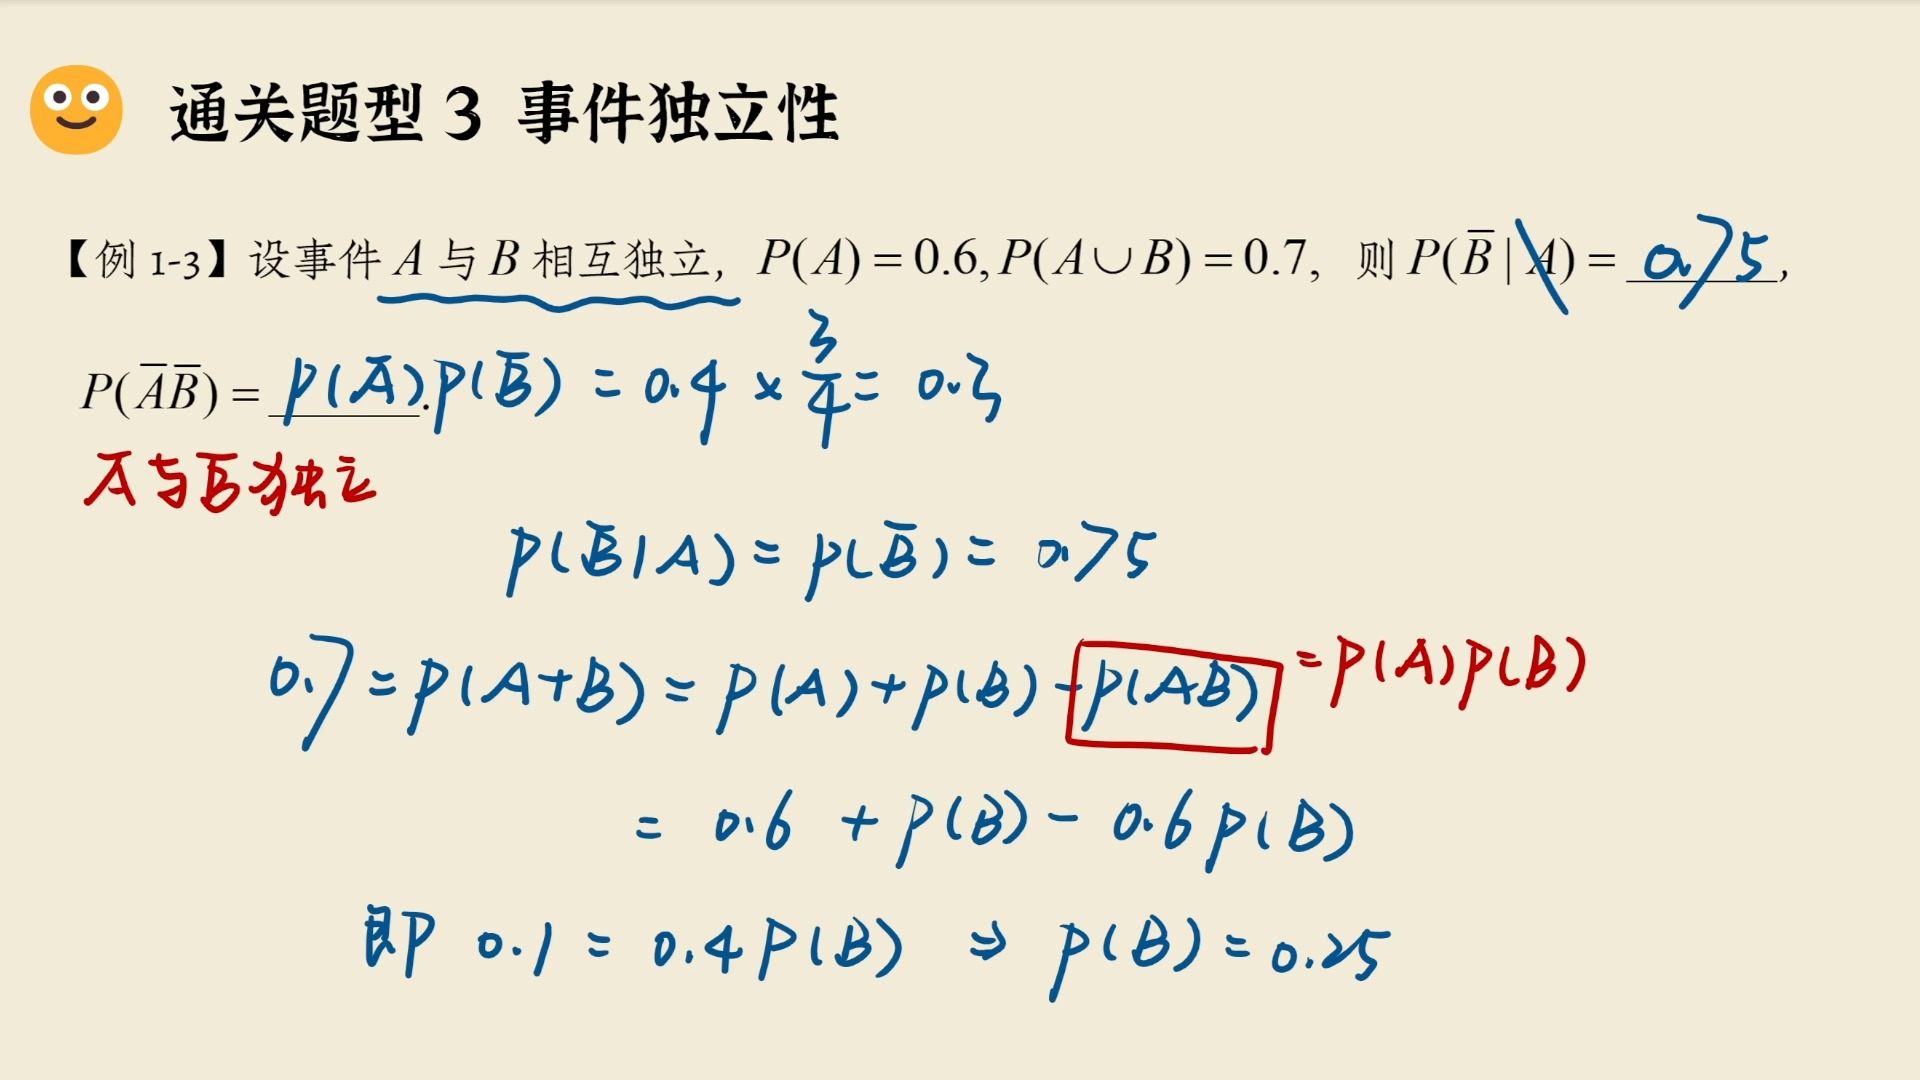 通关题型 3 事件独立性
【例 1-3】设事件 A 与 B 相互独立, P(A) = 0.6, P(A∪B) = 0.7, 则 P(B̅ | A) = 0.75,
P(A̅B̅) = P(A̅)P(B̅) = 0.4 × 3/4 = 0.3.
A̅与B̅独立
P(B̅|A) = P(B̅) = 0.75
0.7 = P(A+B) = P(A) + P(B) - P(AB) = P(A)P(B)
= 0.6 + P(B) - 0.6P(B)
即 0.1 = 0.4P(B) ⇒ P(B) = 0.25